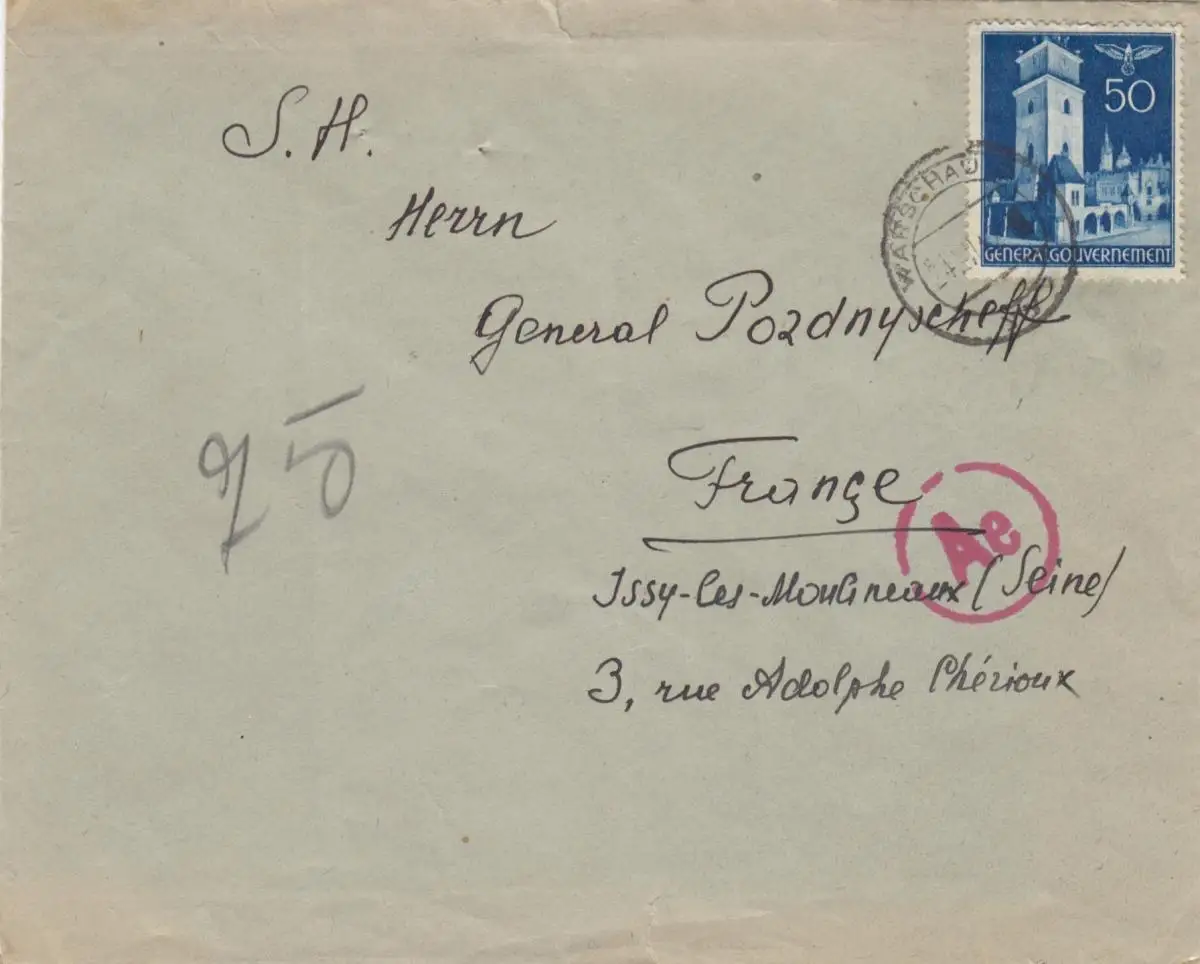 50
GENERALGOUVERNEMENT
WARSCHAU
S. H.
Herrn
General Pozdnyscheff
France
Ae
Issy-les-Moulineaux (Seine)
3, rue Adolphe Chérioux